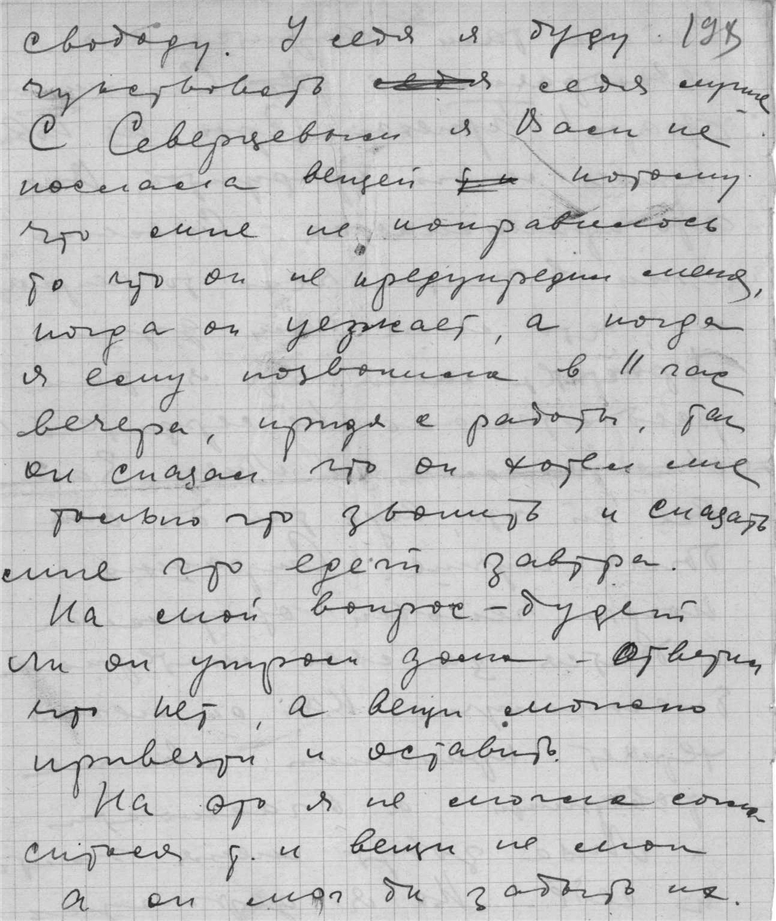 свободу. У себя я буду 198
чувствовать себя лучше
С Северцевым я Вам не
послала вещей потому
что мне не понравилось
то что он не предупредил меня,
когда он уезжает, а когда
я ему позвонила в 11 час
вечера, придя с работы, так
он сказал что он хотел мне
только что звонить и сказать
мне что едет завтра.
На мой вопрос – будет
ли он утром дома – ответил
что нет, а вещи можно
привезти и оставить.
На это я не могла согла-
ситься т. к вещи не мои
а он мог бы забыть их.